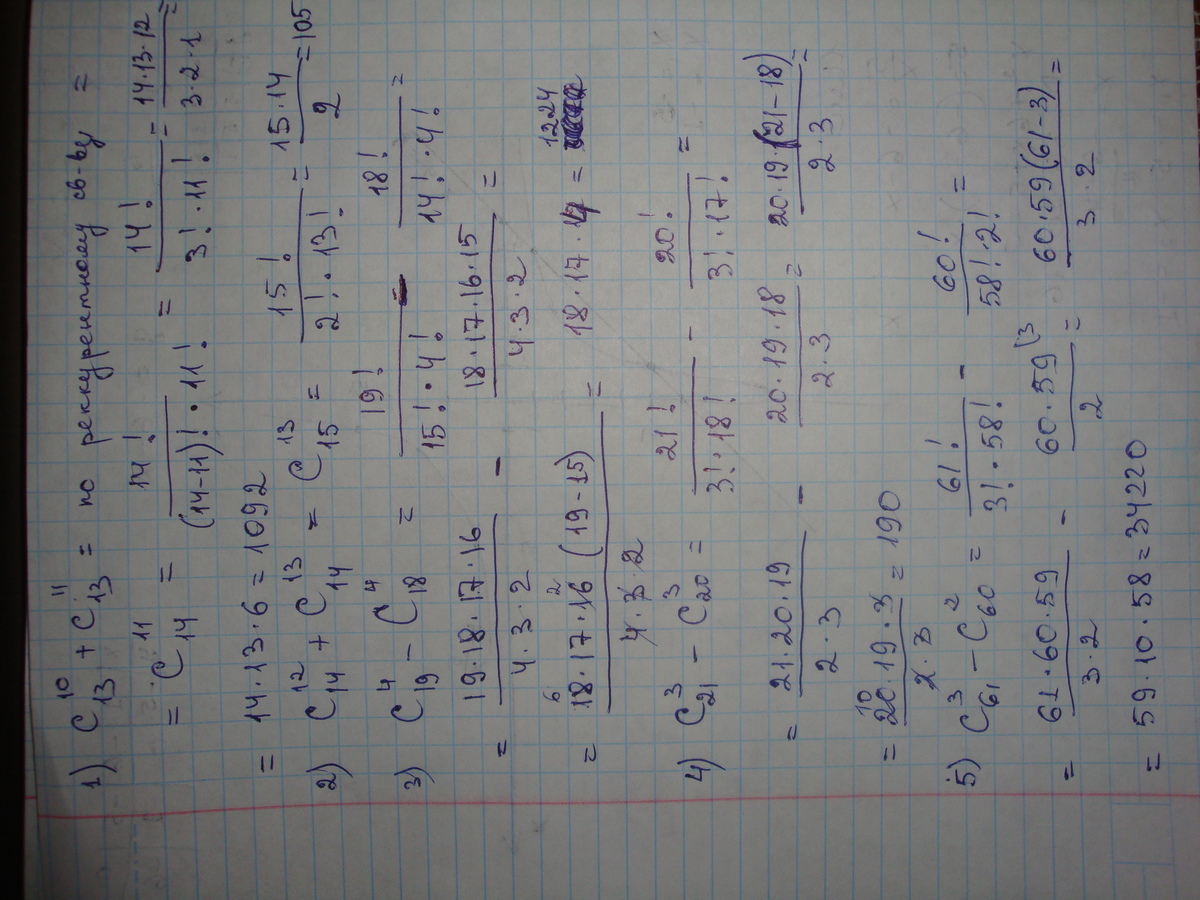 1) C₁₃¹⁰ + C₁₃¹¹ = по реккурентному св-ву =
= C₁₄¹¹ = 14! / ((14-11)! · 11!) = 14! / (3! · 11!) = 14·13·12 / (3·2·1) =
= 14·13·6 = 1092
2) C₁₄¹² + C₁₄¹³ = C₁₅¹³ = 15! / (2! · 13!) = 15·14 / 2 = 105
3) C₁₉⁴ - C₁₈⁴ = 19! / (15! · 4!) - 18! / (14! · 4!) =
= 19·18·17·16 / (4·3·2) - 18·17·16·15 / (4·3·2) =
= 18·17·16 (19-15) / (4·3·2) = 18·17·4 = 1224
4) C₂₁³ - C₂₀³ = 21! / (3!·18!) - 20! / (3!·17!) =
= 21·20·19 / (2·3) - 20·19·18 / (2·3) = 20·19·(21-18) / (2·3) =
= 20·19·3 / (2·3) = 190
5) C₆₁³ - C₆₀² = 61! / (3!·58!) - 60! / (58!·2!) =
= 61·60·59 / (3·2) - 60·59 (3 / 2 = 60·59(61-3) / (3·2) =
= 59·10·58 = 34220